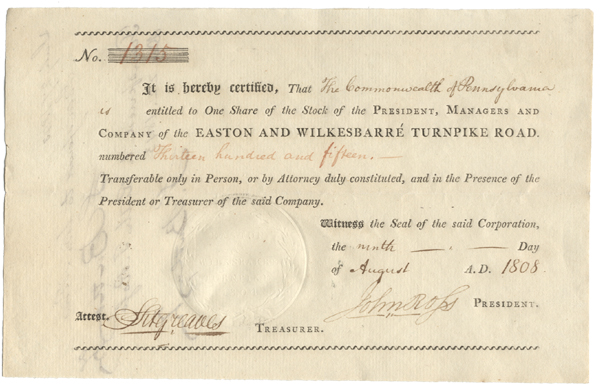 No. 1315
It is hereby certified, That The Commonwealth of Pennsylvania
is entitled to One Share of the Stock of the PRESIDENT, MANAGERS AND
COMPANY of the EASTON AND WILKESBARRÉ TURNPIKE ROAD.
numbered Thirteen hundred and fifteen.—
Transferable only in Person, or by Attorney duly constituted, and in the Presence of the
President or Treasurer of the said Company.
Witness the Seal of the said Corporation,
the ninth Day
of August A.D. 1808.
John Ross PRESIDENT.
Attest. Sitgreaves
TREASURER.